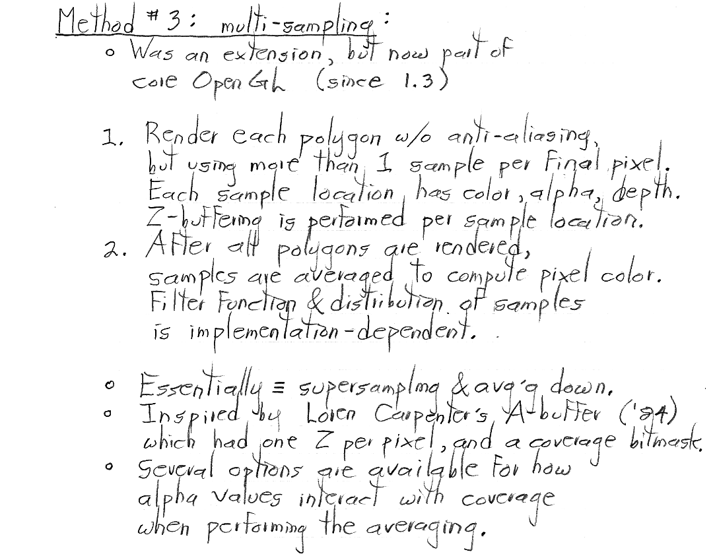 Method #3: multi-sampling:
○ Was an extension, but now part of
core OpenGL (since 1.3)
1. Render each polygon w/o anti-aliasing,
but using more than 1 sample per final pixel.
Each sample location has color, alpha, depth.
Z-buffering is performed per sample location.
2. After all polygons are rendered,
samples are averaged to compute pixel color.
Filter function & distribution of samples
is implementation-dependent.
○ Essentially ≡ supersampling & avg'g down.
○ Inspired by Loren Carpenter's A-buffer ('84)
which had one Z per pixel, and a coverage bitmask.
○ Several options are available for how
alpha values interact with coverage
when performing the averaging.